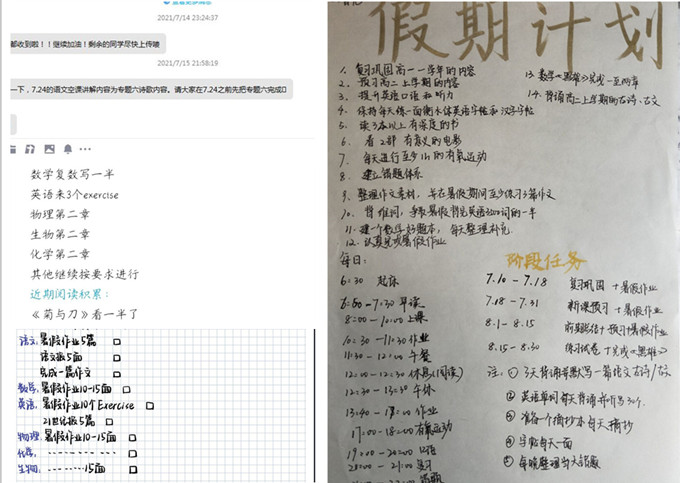 2021/7/14 23:24:37
都收到啦！！继续加油！剩余的同学尽快上传喽
2021/7/15 21:58:19
一下，7.24的语文空课讲解内容为专题六诗歌内容。请大家在7.24之前先把专题六完成
数学复数写一半
英语来3个exercise
物理第二章
生物第二章
化学第二章
其他继续按要求进行
近期阅读积累：
《菊与刀》看一半了
语文：暑假作业5篇
语文报5面
完成一篇作文
数学：暑假作业10-15面
英语：暑假作业10个Exercise
21世纪报5篇
物理：暑假作业10-15面
化学：
生物：15面
假期计划
1. 复习巩固高一一学年的内容
2. 预习高二上学期的内容
3. 提升英语口语和听力
4. 保持每天练一面衡水体英语字帖和汉字字帖
5. 读3本以上有深度的书
6. 看2部有意义的电影
7. 每天进行至少1h的有氧运动
8. 建立错题体系
9. 整理作文素材，并在暑假期间至少练习3篇作文
10. 背单词，争取暑假背完英语3500词的一半
11. 建一个数学好题本，每天整理补充
12. 认真完成暑假作业
13. 数学《黑雄》完成一至两章
14. 背诵高二上学期的古诗、古文
每日：
6:30 起床
6:60-7:30 早读
8:00-10:00 上课
10:30-11:30 作业
11:30-12:00 午餐
12:00-12:30 休息(阅读)
12:30-13:30 午休
13:40-17:00 作业
17:00-18:00 有氧运动
19:00-20:00 口语
20:00-21:00 复习
阶段任务
7.10-7.18 复习巩固+暑假作业
7.18-7.31 新课预习+暑假作业
8.1-8.15 前期总结+预习+暑假作业
8.15-8.30 练习试卷+完成《黑雄》
注：① 3天背诵并默写一篇语文古诗/古文
② 英语单词每天背诵书写30个
③ 准备一个摘抄本每天摘抄
④ 字帖每天一面
⑤ 每晚整理当天错题